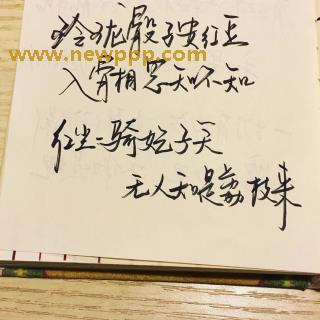 玲珑骰子安红豆
www.newppp.com
入骨相思知不知
红尘一骑妃子笑
无人知是荔枝来